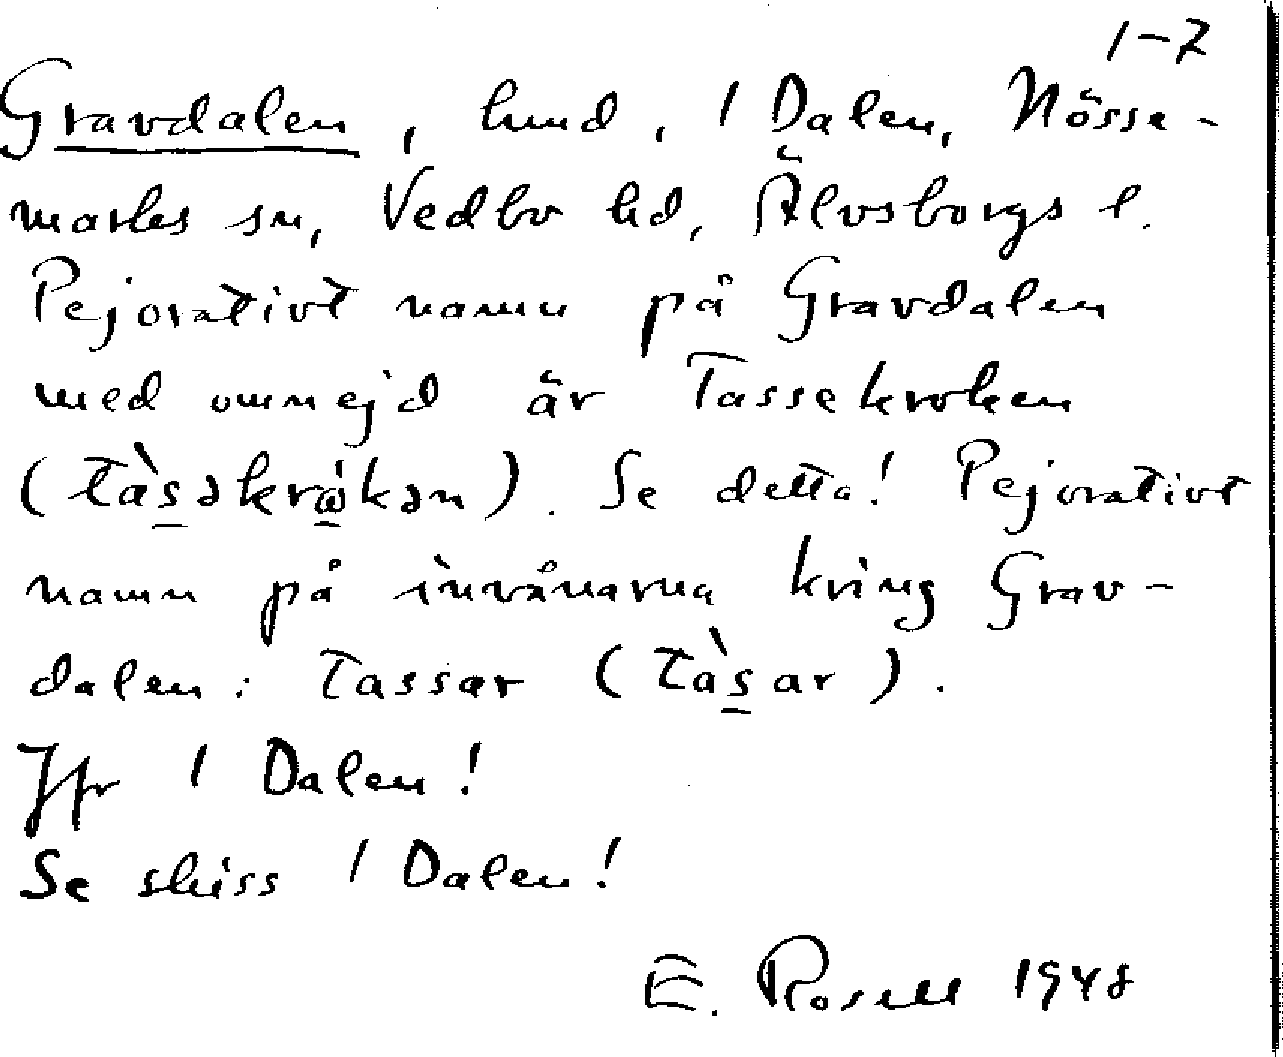 1-7
Gravdalen, hmd, 1 Dalen, Nösse-
marks sn, Vedbo hd, Älvsborgs l.
Pejorativt namn på Gravdalen
med omnejd är Tassekroken
(tàs̲əkrω̲̇kən). Se detta! Pejorativt
namn på invånarna kring Grav-
dalen: Tassar (tàs̲ar).
Jfr 1 Dalen!
Se skiss 1 Dalen!
E. Rosell 1948